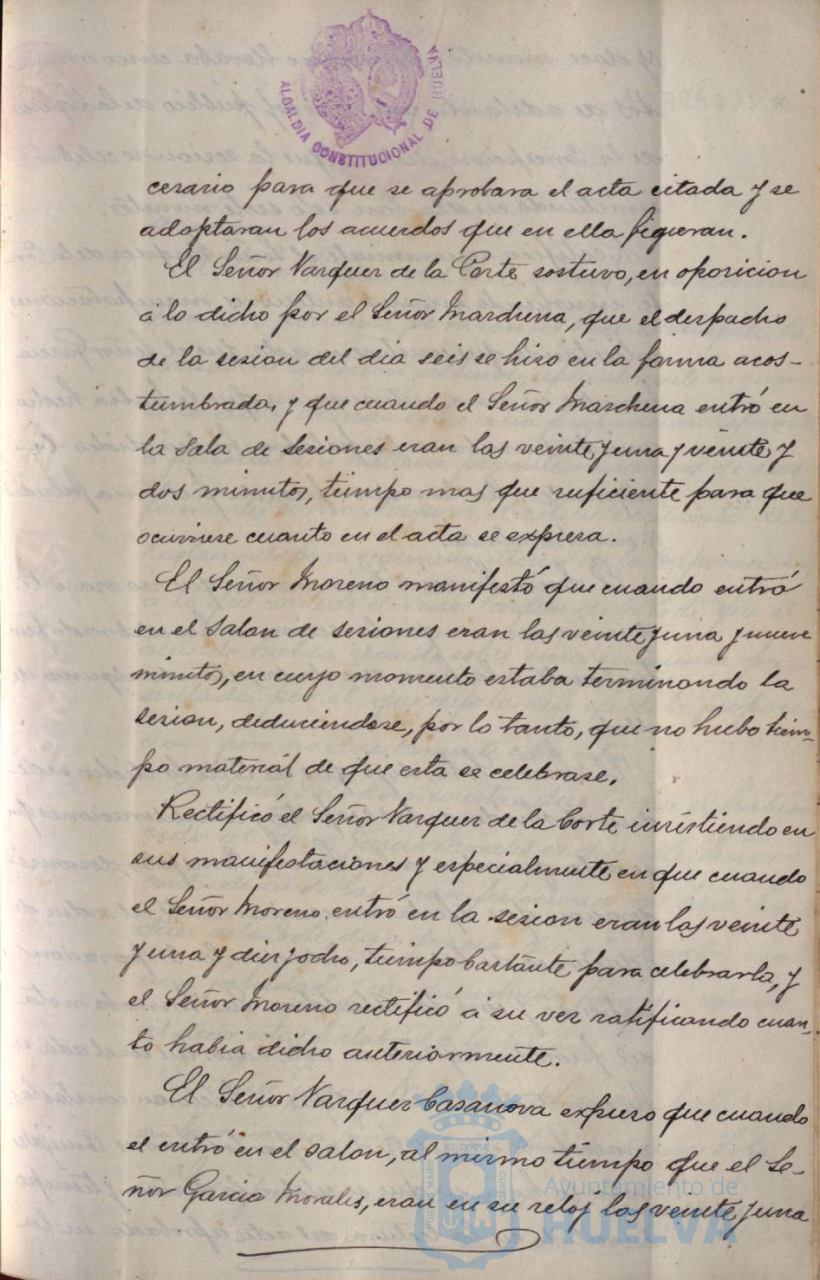 ALCALDIA CONSTITUCIONAL DE HUELVA
cesario para que se aprobara el acta citada y se
adoptaran los acuerdos que en ella figuran.
El Señor Vazquez de la Corte sostuvo, en oposicion
á lo dicho por el Señor Marchena, que el despacho
de la sesion del dia seis se hizo en la forma acos-
tumbrada, y que cuando el Señor Marchena entró en
la Sala de Sesiones eran las veinte y una y veinte y
dos minutos, tiempo mas que suficiente para que
ocurriese cuanto en el acta se expresa.
El Señor Moreno manifestó que cuando entró
en el Salon de sesiones eran las veinte y una y nueve
minutos, en cuyo momento estaba terminando la
sesion, deduciendose, por lo tanto, que no hubo tiem-
po material de que esta se celebrase.
Rectificó el Señor Vazquez de la Corte insistiendo en
sus manifestaciones y especialmente en que cuando
el Señor Moreno entró en la sesion eran las veinte
y una y diez y ocho, tiempo bastante para celebrarla, y
el Señor Moreno rectificó á su vez ratificando cuan-
to habia dicho anteriormente.
El Señor Vazquez Casanova expuso que cuando
el entró en el salon, al mismo tiempo que el Se-
ñor Garcia Morales, eran en su reloj las veinte y una
Ayuntamiento de
HUELVA